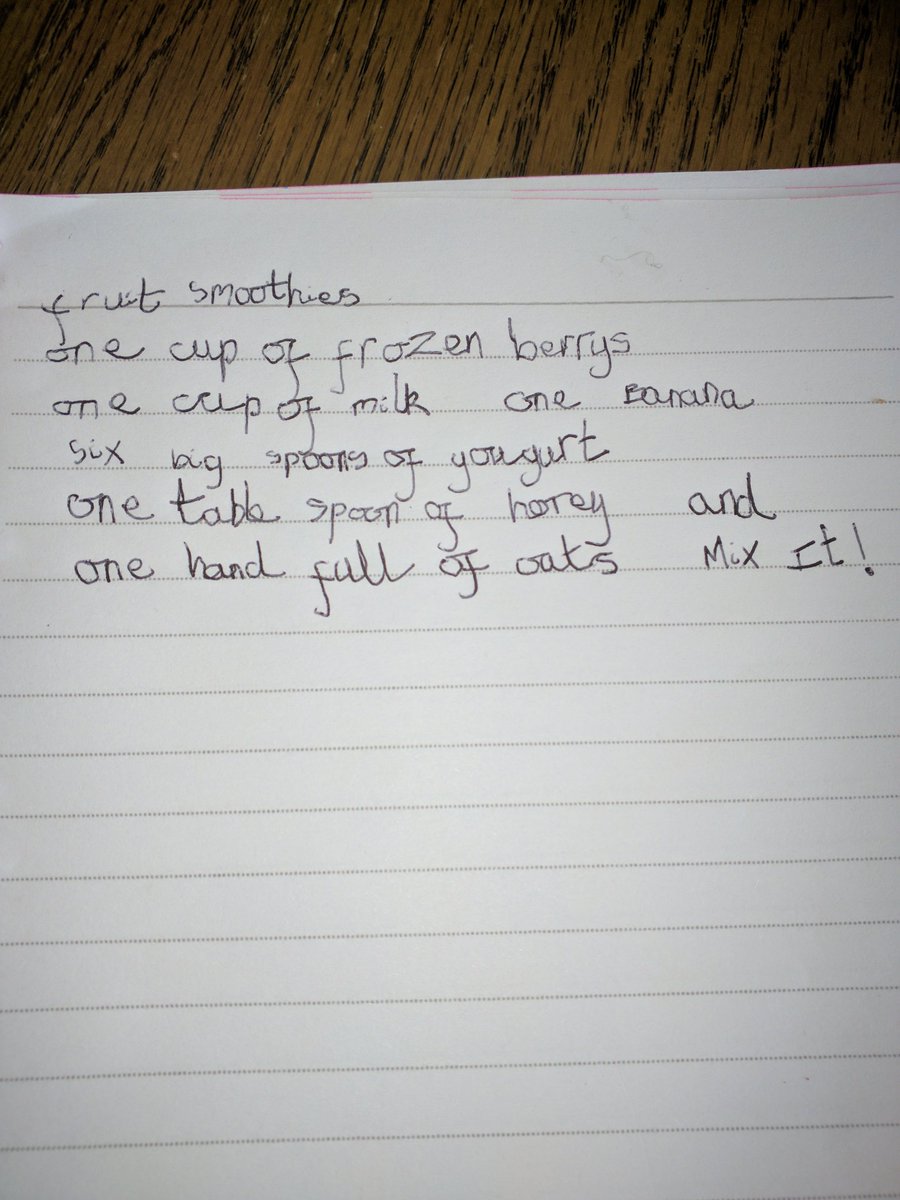 fruit smoothies
one cup of frozen berrys
one cup of milk one Banana
six big spoons of yougurt
one table spoon of honey and
one hand full of oats Mix It!